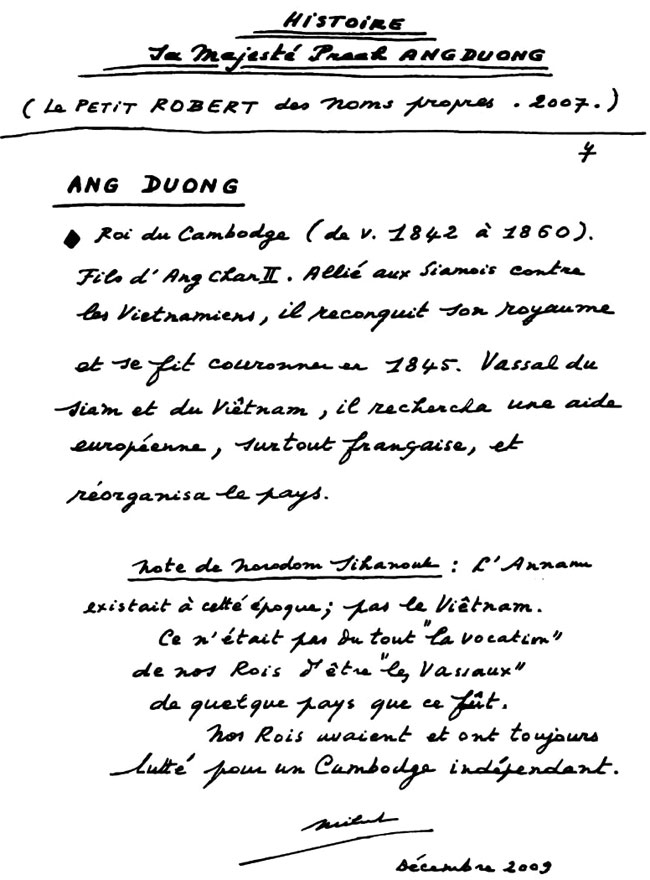 HISTOIRE
Sa Majesté Preah ANG DUONG
(Le PETIT ROBERT des noms propres . 2007.)
ANG DUONG
◆ Roi du Cambodge (de v. 1842 à 1860).
Fils d'Ang Chan II. Allié aux Siamois contre
les Vietnamiens, il reconquit son royaume
et se fit couronner en 1845. Vassal du
Siam et du Viêtnam, il rechercha une aide
européenne, surtout française, et
réorganisa le pays.
Note de Norodom Sihanouk : L'Annam
existait à cette époque; pas le Viêtnam.
Ce n'était pas du tout "la vocation"
de nos Rois d'être "les Vassaux"
de quelque pays que ce fût.
Nos Rois avaient et ont toujours
lutté pour un Cambodge indépendant.
Décembre 2009